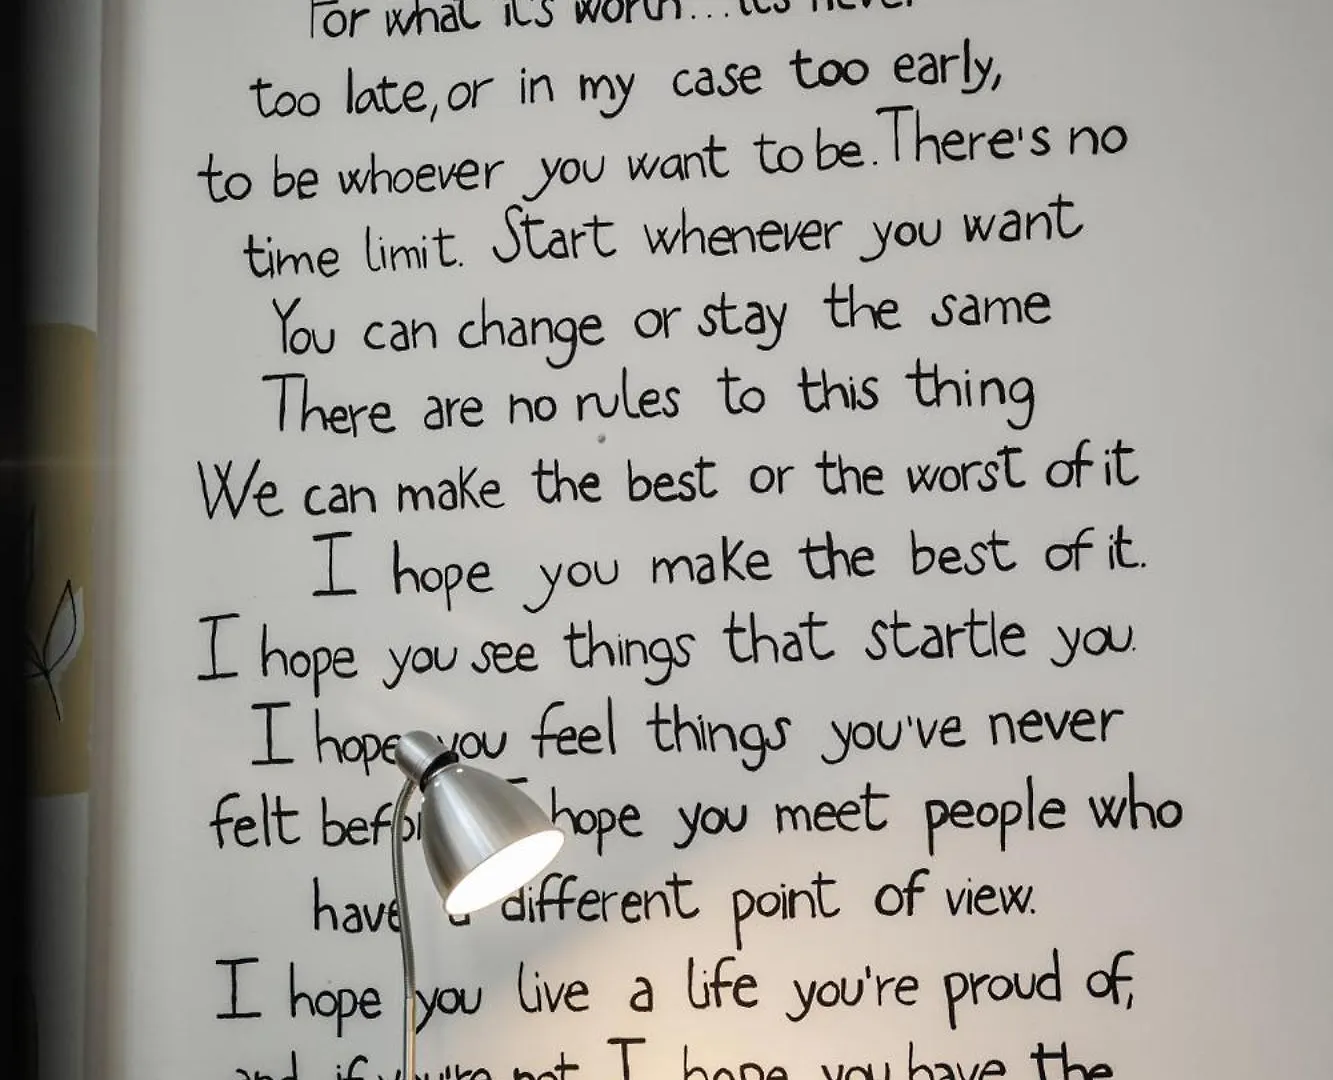 For what it's worth...it's never
too late, or in my case too early,
to be whoever you want to be. There's no
time limit. Start whenever you want
You can change or stay the same
There are no rules to this thing
We can make the best or the worst of it
I hope you make the best of it.
I hope you see things that startle you.
I hope you feel things you've never
felt before I hope you meet people who
have a different point of view.
I hope you live a life you're proud of,
and if you're not I hope you have the